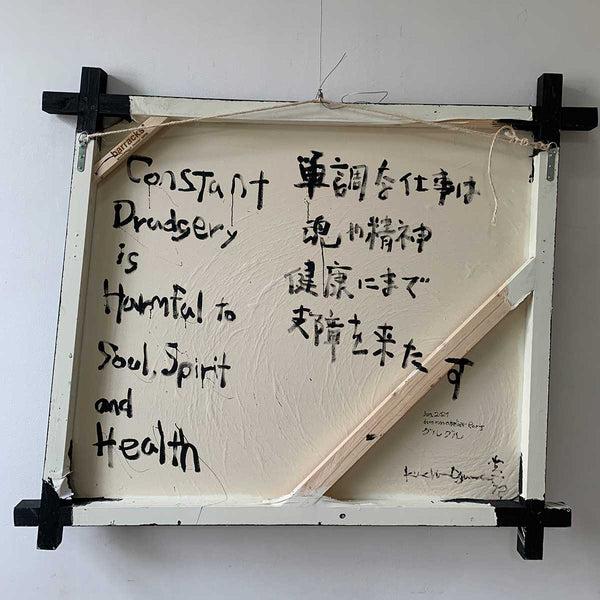 barracks
Constant
Drudgery
is
Harmful to
Soul, Spirit
and
Health
単調な仕事は
魂や精神
健康にまで
支障を来たす
グルグル